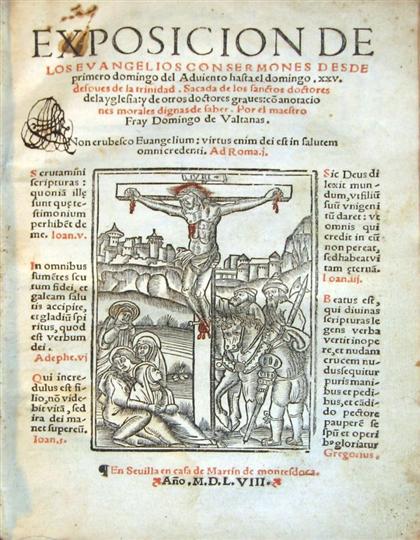 EXPOSICION DE
LOS EVANGELIOS CON SERMONES DESDE
primero domingo del Aduiento hasta el domingo .xxv.
despues de la trinidad. Sacada de los sanctos doctores
de la yglesia: y de otros doctores graues: cõ anotacio
nes morales dignas de saber. Por el maestro
Fray Domingo de Valtanas.
Non erubesco Euangelium; virtus enim dei est in salutem
omni credenti. Ad Roma.j.
Scrutamini
scripturas:
quoniã ille
sunt que te-
stimonium
perhibẽt de
me. Ioan.v.
In omnibus
sumẽtes scu
tum fidei, et
galeam salu
tis accipite,
et gladiũ spi
ritus, quod
est verbum
dei.
Ad ephe.vj
Qui incre-
dulus est fi-
lio, nõ vide-
bit vitã, sed
ira dei ma-
net super eũ.
Ioan.3.
INRI
Sic Deus di
lexit mun-
dum, vt filiũ
suũ vnigeni
tũ daret: vt
omnis qui
credit in eũ
non pereat,
sed habeat vi
tam eternã.
Ioan.iij.
Beatus est,
qui diuinas
scripturas le
gens verba
vertit in ope
re, et nudam
crucem nu-
dus sequitur
puris mani-
bus et pedi-
bus, et cãdi-
do pectore
pauperẽ se
ipsũ et operi
bus gloriatur
Gregorius.
¶ En Seuilla en casa de Martin de montesdoca.
Año. M.D.L.VIII.